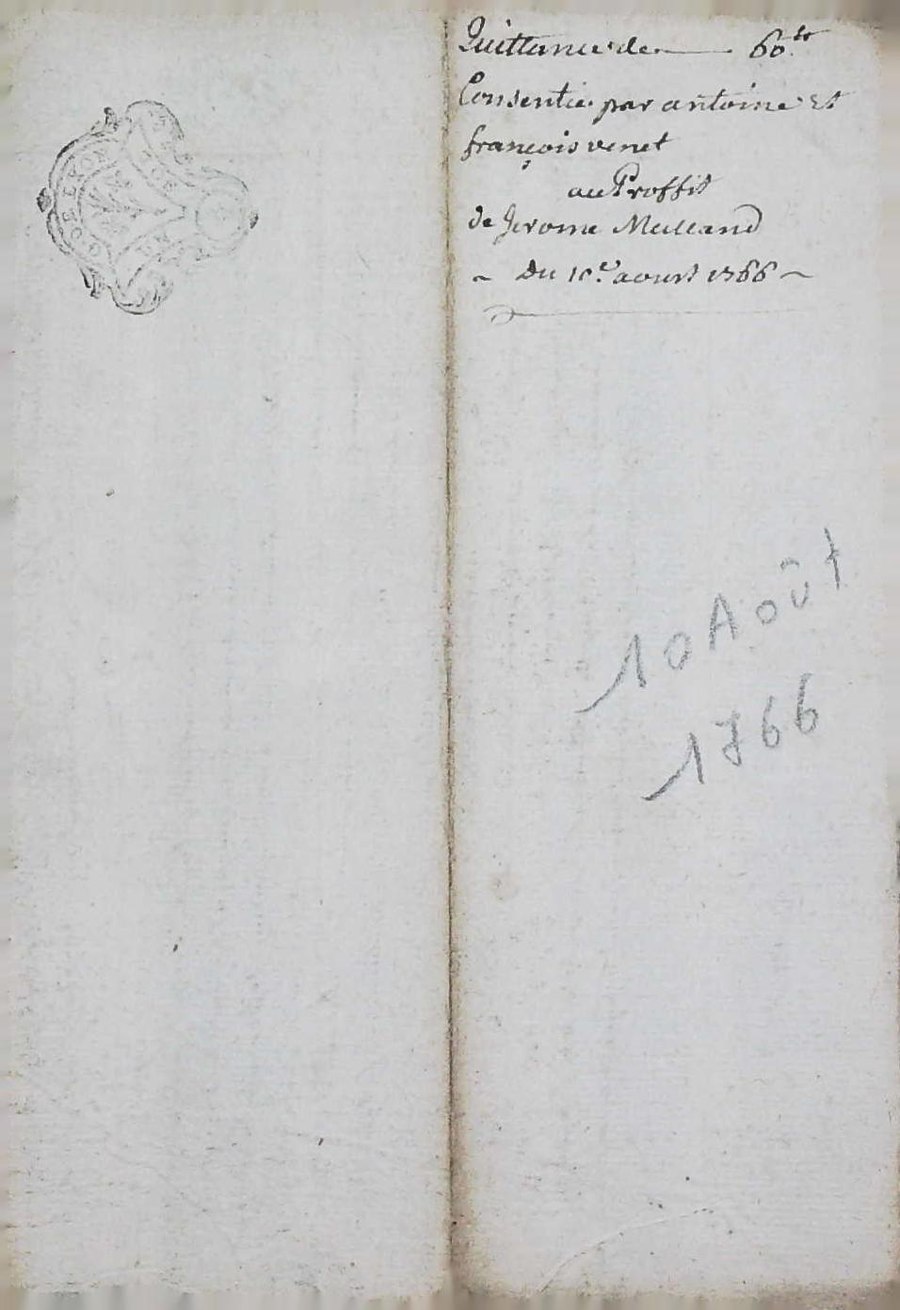 Quittance de 60.tt
Consentie par antoine Et
françois venet
au Proffit
de Jerome
Du 10.e aoust 1766
10 Août
1766